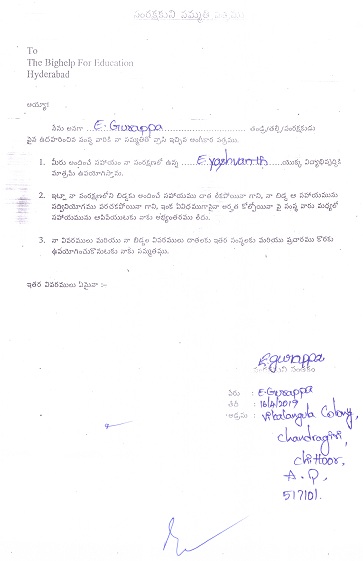 సంరక్షకుని సమ్మతి పత్రము
To
The Bighelp For Education
Hyderabad
అయ్యా!
నేను అనగా E. Gurappa తండ్రి/తల్లి/సంరక్షకుడు
పైన ఉదహరించిన సంస్థ వారికి నా సమ్మతితో వ్రాసి ఇచ్చిన అంగీకార పత్రము.
1. మీరు అందించే సహాయం నా సంరక్షణలో ఉన్న E. yashvanth యొక్క విద్యాభివృద్ధికి
మాత్రమే ఉపయోగిస్తాను.
2. ఇట్లా నా సంరక్షణలోని బిడ్డకు అందించే సహాయము దాత లేకపోయినా గాని, నా బిడ్డ ఆ సహాయమును
సద్వినియోగము పరచకపోయినా గాని, ఇంక ఏవిధముగానైనా అర్హత కోల్పోయినా పై సంస్థ వారు మధ్యలో
సహాయమును ఆపివేయుటకు నాకు అభ్యంతరము లేదు.
3. నా వివరములు మరియు నా బిడ్డల వివరములు దాతలకు ఇతర సంస్థలకు మరియు ప్రచారము కొరకు
ఉపయోగించుకొనుటకు నాకు సమ్మతము.
ఇతర వివరములు ఏమైనా :-
E.gurappa
సంరక్షకుని సంతకం
పేరు : E. Gurappa
తేది : 16/4/2019
అడ్రసు : Vikalangula Colony,
Chandragiri,
Chittoor,
A.P,
517101.